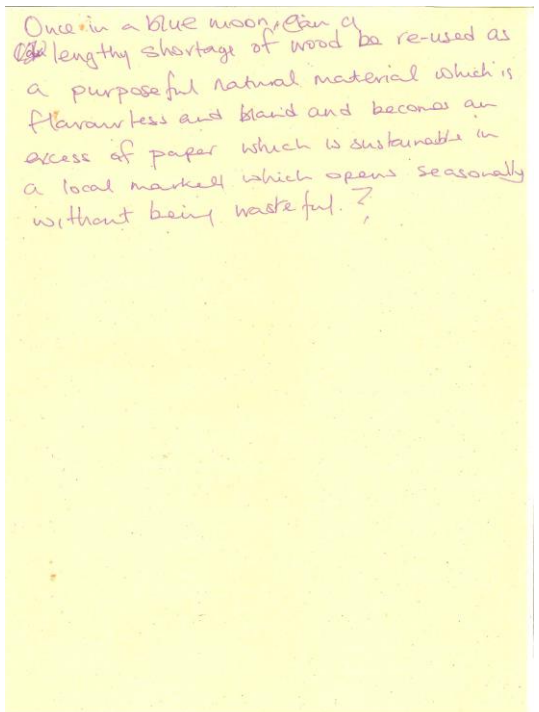 Once in a blue moon, can a
lengthy shortage of wood be re-used as
a purposeful natural material which is
flavourless and bland and becomes an
excess of paper which is sustainable in
a local market which opens seasonally
without being wasteful.?